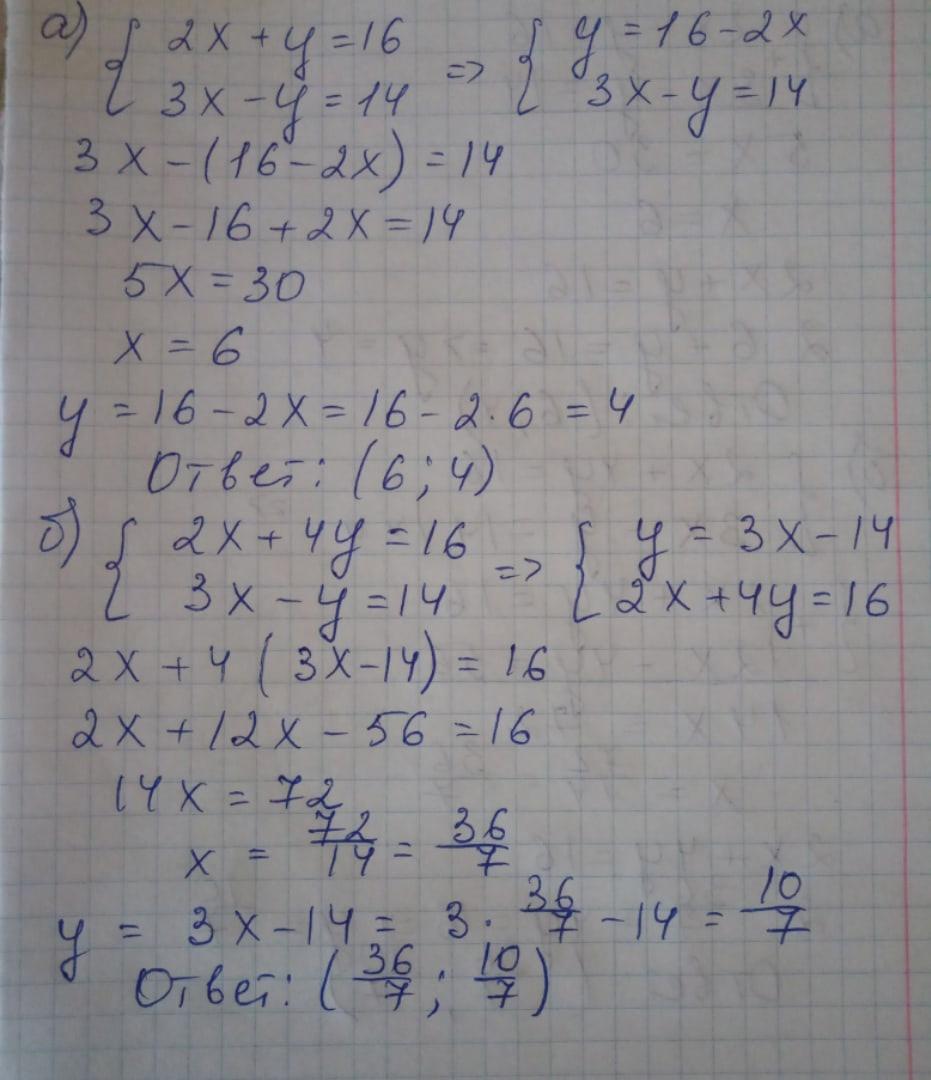 а) { 2x + y = 16 => { y = 16 - 2x
3x - y = 14 3x - y = 14
3x - (16 - 2x) = 14
3x - 16 + 2x = 14
5x = 30
x = 6
y = 16 - 2x = 16 - 2·6 = 4
Ответ: (6; 4)
б) { 2x + 4y = 16 => { y = 3x - 14
3x - y = 14 2x + 4y = 16
2x + 4(3x - 14) = 16
2x + 12x - 56 = 16
14x = 72
x = 72/14 = 36/7
y = 3x - 14 = 3 · 36/7 - 14 = 10/7
Ответ: (36/7; 10/7)